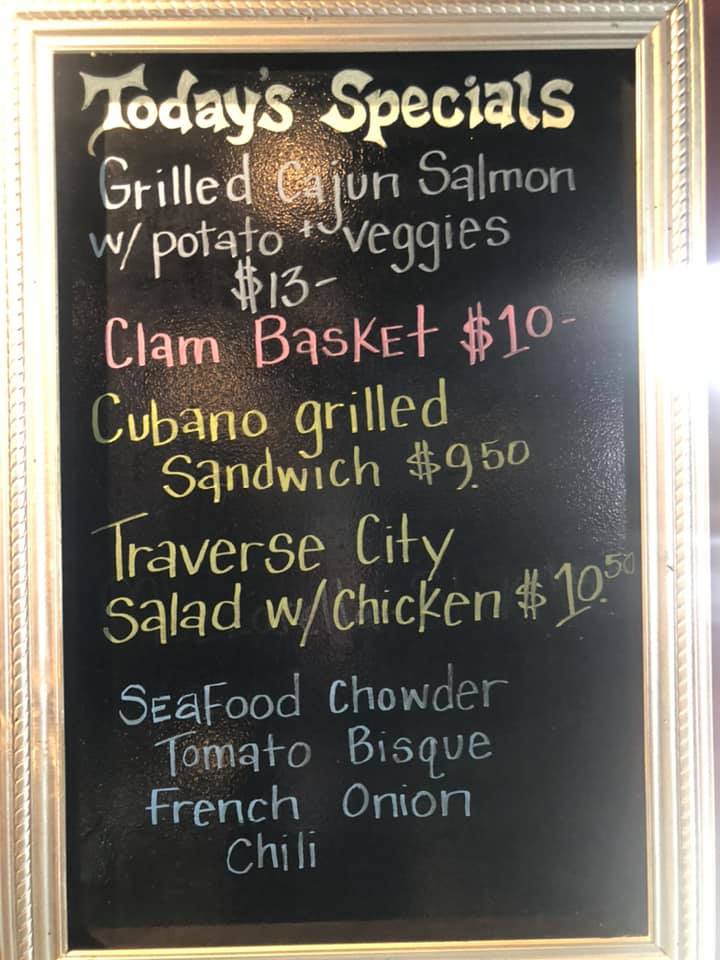 Today's Specials
Grilled Cajun Salmon
w/ potato + veggies
$13-
Clam Basket $10-
Cubano grilled
Sandwich $9.50
Traverse City
Salad w/Chicken $10.50
Seafood Chowder
Tomato Bisque
French Onion
Chili